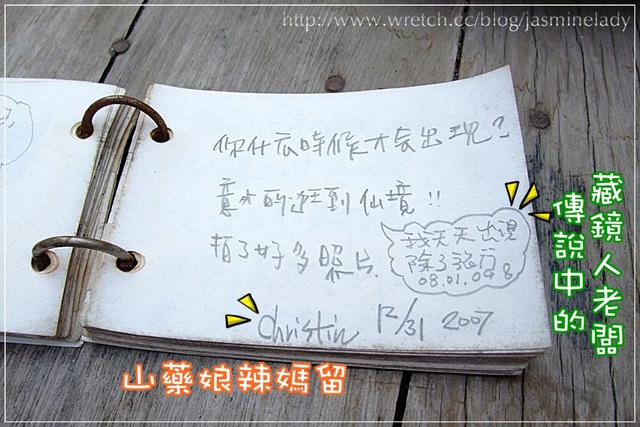 http://www.wretch.cc/blog/jasminelady
你什么時候才會出現?
意外的逛到仙境!!
拍了好多照片.
我天天出現
除了旅行
08.01.09
Christin 12/31 2007
傳說中的
藏鏡人老闆
山藥娘辣媽留